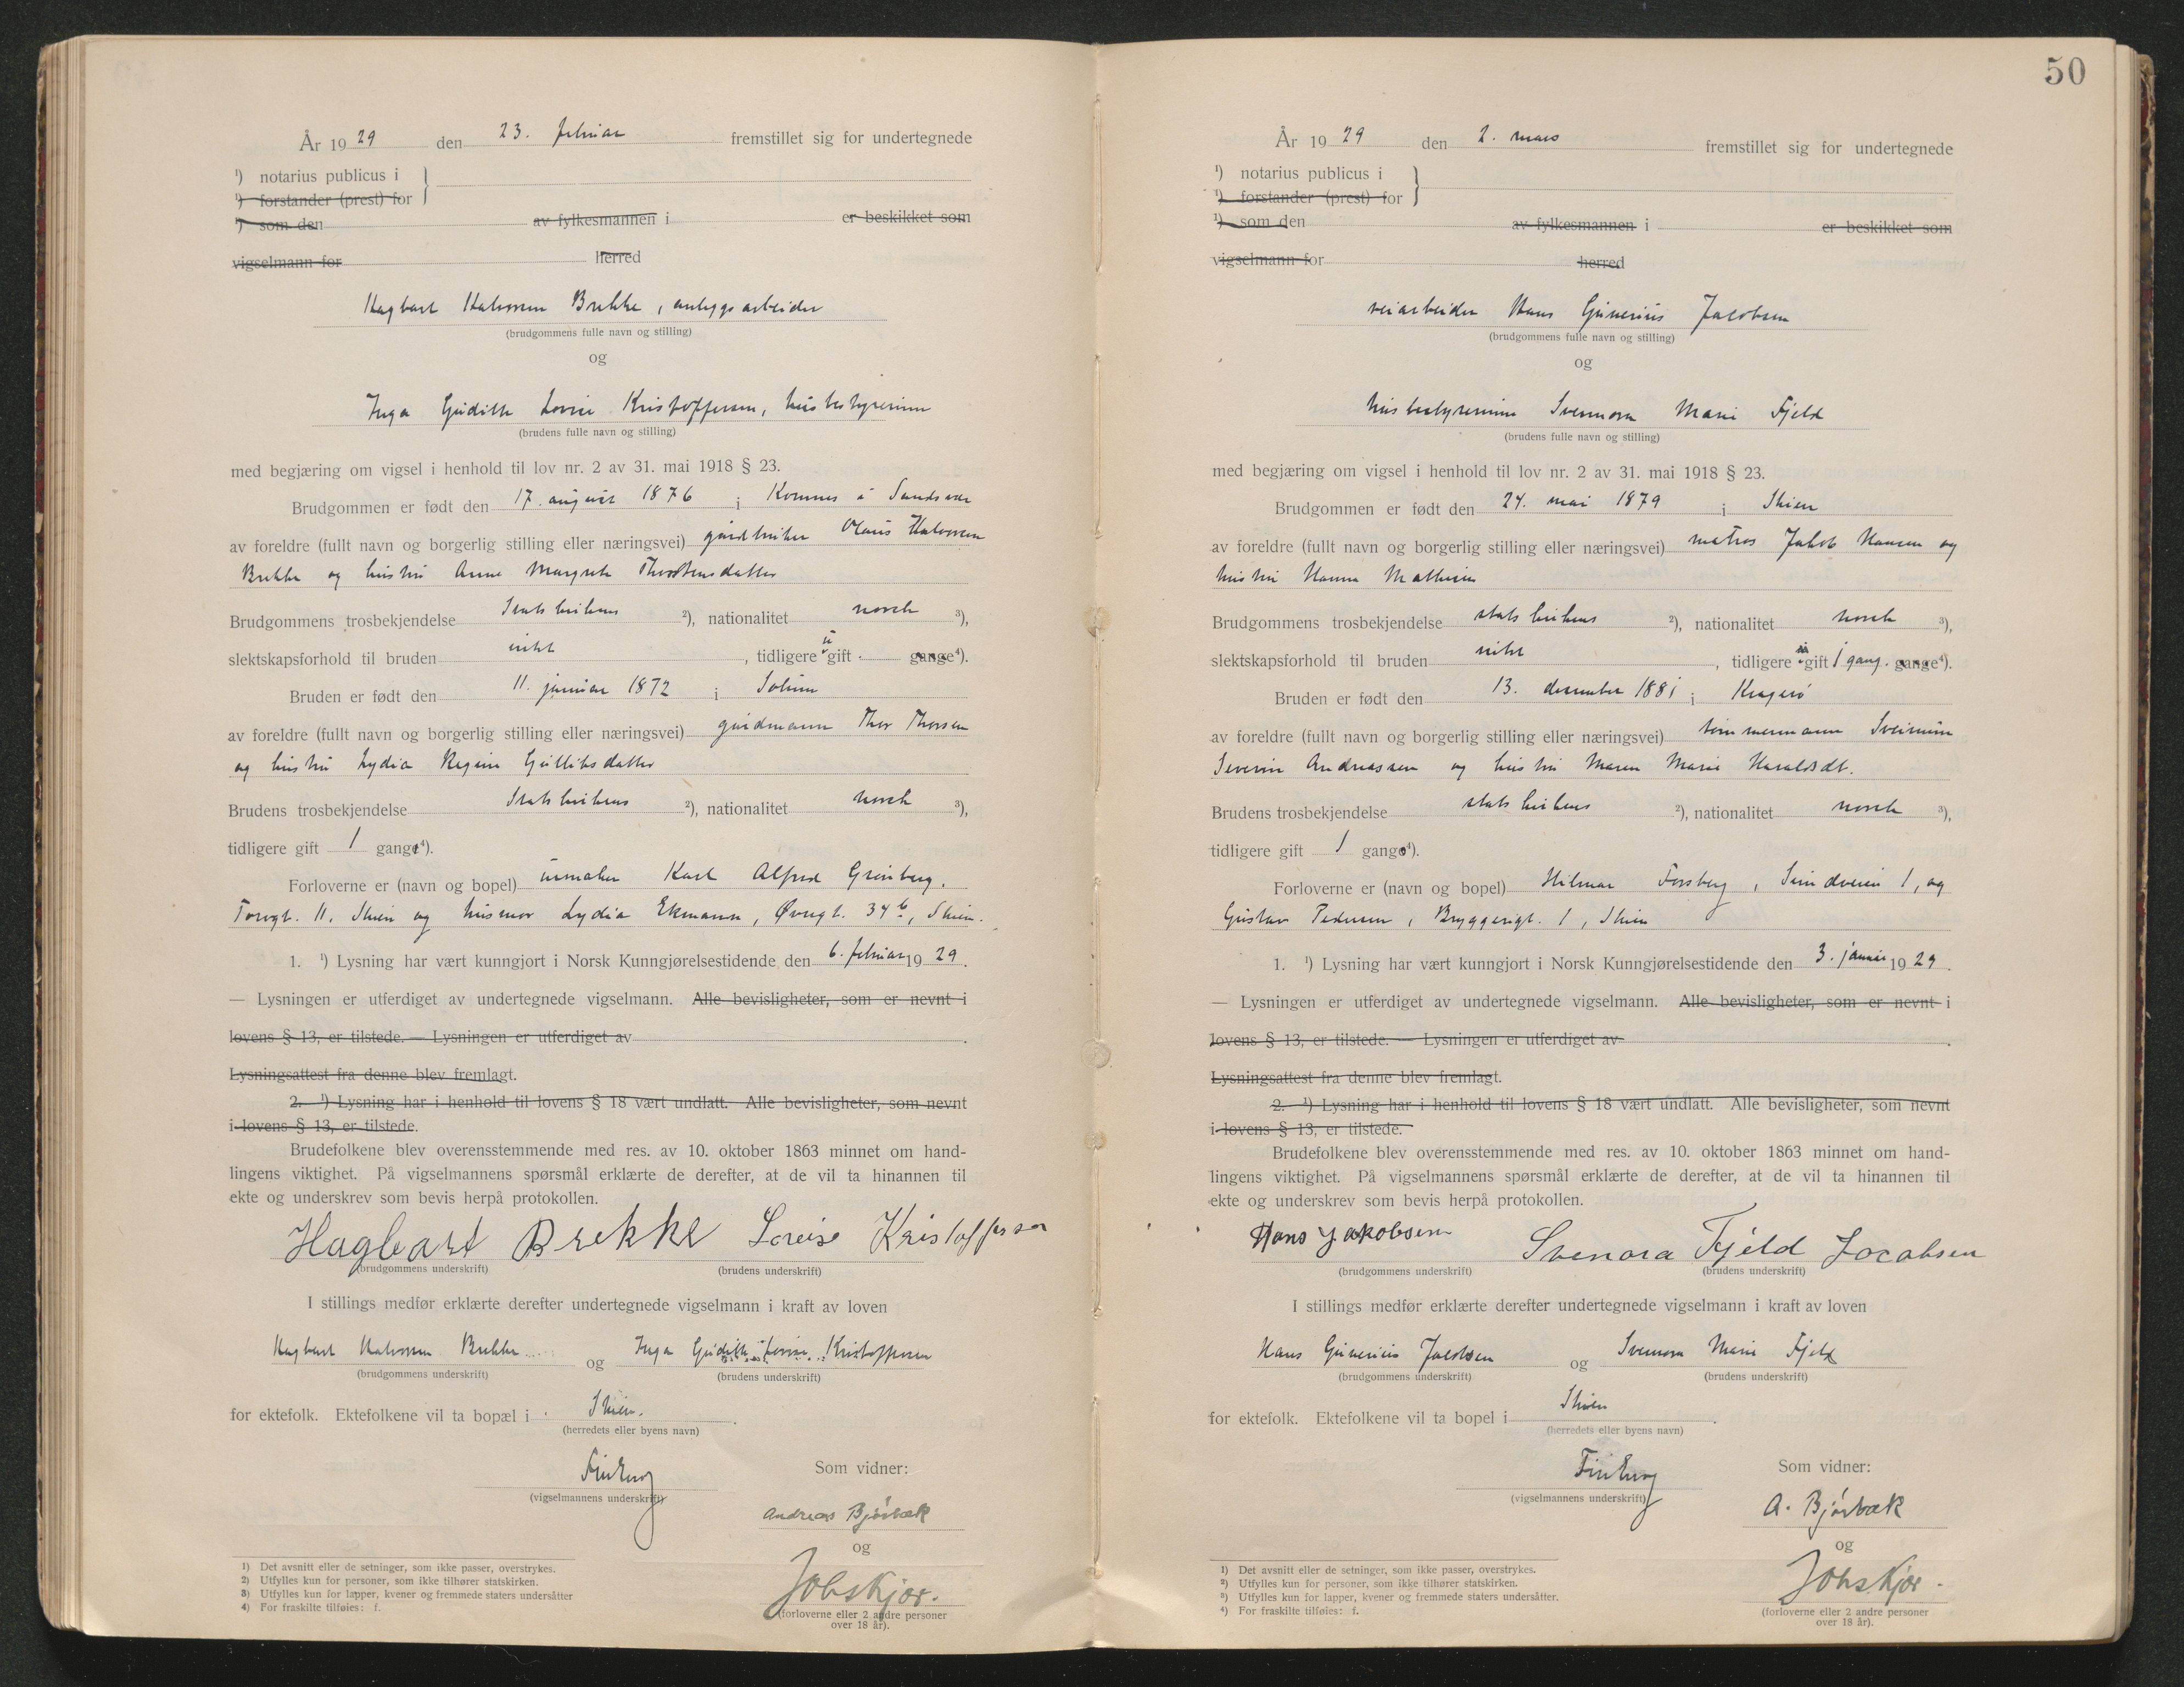 År 1929 den 23. februar fremstillet sig for undertegnede
¹) notarius publicus i }
¹) forstander (prest) for
¹) som den av fylkesmannen i er beskikket som
vigselmann for herred
Hagbart Halvorsen Brekke, anleggsarbeider
(brudgommens fulle navn og stilling)
og
Inga Gudithe Lovise Kristoffersen, husbestyrerinne
(brudens fulle navn og stilling)
med begjæring om vigsel i henhold til lov nr. 2 av 31. mai 1918 § 23.
Brudgommen er født den 17. august 1876 i Komnes i Sandsvær
av foreldre (fullt navn og borgerlig stilling eller næringsvei) gårdbruker Olaus Halvorsen
Brekke og hustru Anne Margrete Thorstensdatter
Brudgommens trosbekjendelse Statskirkens ²), nationalitet norsk ³),
slektskapsforhold til bruden intet, tidligere u gift gange⁴).
Bruden er født den 11. januar 1872 i Solum
av foreldre (fullt navn og borgerlig stilling eller næringsvei) gårdmann Thor Thorsen
og hustru Lydia Regine Gulliksdatter
Brudens trosbekjendelse Statskirkens ²), nationalitet norsk ³),
tidligere gift 1 gang⁴).
Forloverne er (navn og bopel) urmaker Karl Alfred Grønberg,
Torvgt. 11, Skien og husmor Lydia Ekmann, Øvregt. 34 b, Skien.
1. ¹) Lysning har vært kunngjort i Norsk Kunngjørelsestidende den 6. februar 1929.
— Lysningen er utferdiget av undertegnede vigselmann. Alle bevisligheter, som er nevnt i
lovens § 13, er tilstede. — Lysningen er utferdiget av .
Lysningsattest fra denne blev fremlagt.
2. ¹) Lysning har i henhold til lovens § 18 vært undlatt. Alle bevisligheter, som nevnt
i lovens § 13, er tilstede.
Brudefolkene blev overensstemmende med res. av 10. oktober 1863 minnet om hand-
lingens viktighet. På vigselmannens spørsmål erklærte de derefter, at de vil ta hinannen til
ekte og underskrev som bevis herpå protokollen.
Hagbart Brekke Loveise Kristoffersen
(brudgommens underskrift) (brudens underskrift)
I stillings medfør erklærte derefter undertegnede vigselmann i kraft av loven
Hagbart Halvorsen Brekke og Inga Gudithe Lovise Kristoffersen
(brudgommens underskrift) (brudens underskrift)
for ektefolk. Ektefolkene vil ta bopæl i Skien.
(herredets eller byens navn)
Som vidner:
(vigselmannens underskrift)
Andreas Bjørbæk
og
(forloverne eller 2 andre personer
over 18 år).
1) Det avsnitt eller de setninger, som ikke passer, overstrykes.
2) Utfylles kun for personer, som ikke tilhører statskirken.
3) Utfylles kun for lapper, kvener og fremmede staters undersåtter
4) For fraskilte tilføies: f.
50
År 1929 den 2. mars fremstillet sig for undertegnede
¹) notarius publicus i }
¹) forstander (prest) for
¹) som den av fylkesmannen i er beskikket som
vigselmann for herred
veiarbeider Hans Gunerius Jacobsen
(brudgommens fulle navn og stilling)
og
husbestyrerinne Svennora Marie Fjeld
(brudens fulle navn og stilling)
med begjæring om vigsel i henhold til lov nr. 2 av 31. mai 1918 § 23.
Brudgommen er født den 24. mai 1879 i Skien
av foreldre (fullt navn og borgerlig stilling eller næringsvei) matros Jakob Hansen og
hustru Hanna Mathisen
Brudgommens trosbekjendelse statskirkens ²), nationalitet norsk ³),
slektskapsforhold til bruden intet, tidligere gift 1 gang. gange⁴).
Bruden er født den 13. desember 1881 i Kragerø
av foreldre (fullt navn og borgerlig stilling eller næringsvei) tømmermann Sveinun
Severin Andreassen og hustru Maren Marie Haraldsdt.
Brudens trosbekjendelse statskirkens ²), nationalitet norsk ³),
tidligere gift 1 gang⁴).
Forloverne er (navn og bopel) Hilmar Forsberg, Sundveien 1, og
Gustav Pedersen, Bryggerigt. 1, Skien
1. ¹) Lysning har vært kunngjort i Norsk Kunngjørelsestidende den 3. januar 1929.
— Lysningen er utferdiget av undertegnede vigselmann. Alle bevisligheter, som er nevnt i
lovens § 13, er tilstede. — Lysningen er utferdiget av .
Lysningsattest fra denne blev fremlagt.
2. ¹) Lysning har i henhold til lovens § 18 vært undlatt. Alle bevisligheter, som nevnt
i lovens § 13, er tilstede.
Brudefolkene blev overensstemmende med res. av 10. oktober 1863 minnet om hand-
lingens viktighet. På vigselmannens spørsmål erklærte de derefter, at de vil ta hinannen til
ekte og underskrev som bevis herpå protokollen.
Hans Jakobsen Svenora Fjeld Jocobsen
(brudgommens underskrift) (brudens underskrift)
I stillings medfør erklærte derefter undertegnede vigselmann i kraft av loven
Hans Gunerius Jacobsen og Svennora Marie Fjeld
(brudgommens underskrift) (brudens underskrift)
for ektefolk. Ektefolkene vil ta bopel i Skien.
(herredets eller byens navn)
Som vidner:
(vigselmannens underskrift)
A. Bjørbæk
og
(forloverne eller 2 andre personer
over 18 år).
1) Det avsnitt eller de setninger, som ikke passer, overstrykes.
²) Utfylles kun for personer, som ikke tilhører statskirken.
³) Utfylles kun for lapper, kvener og fremmede staters undersåtter.
⁴) For fraskilte tilføies: f.